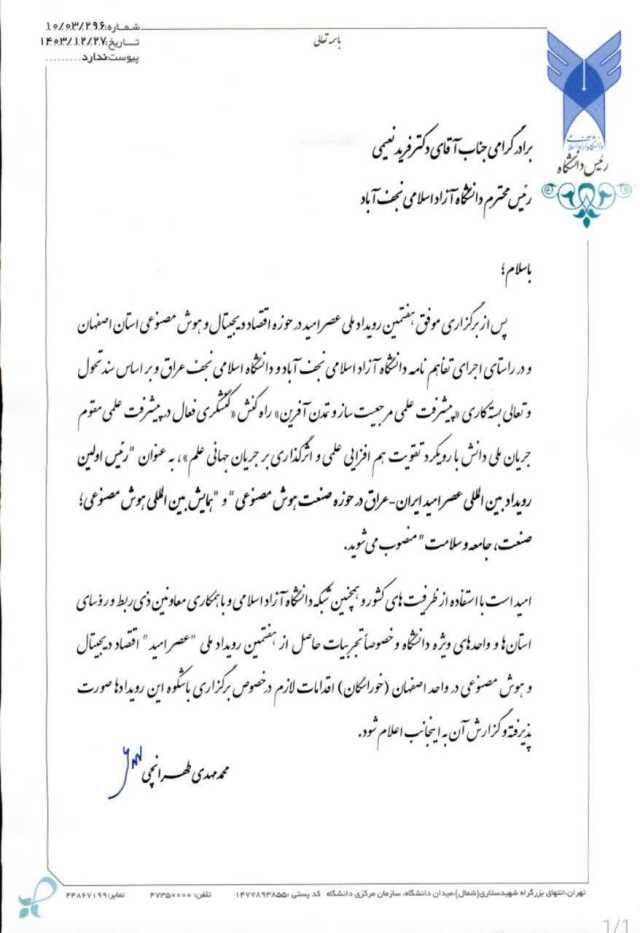 باسمه تعالی
شماره:۱۰/۰۳/۲۹۶
تاریخ:۱۴۰۳/۱۲/۲۷
پیوست:ندارد
رئیس دانشگاه
برادر گرامی جناب آقای دکتر فرید نعیمی
رئیس محترم دانشگاه آزاد اسلامی نجف آباد
باسلام؛
پس از برگزاری موفق هفتمین رویداد ملی عصر امید در حوزه اقتصاد دیجیتال و هوش مصنوعی استان اصفهان
و در راستای اجرای تفاهم نامه دانشگاه آزاد اسلامی نجف آباد و دانشگاه اسلامی نجف عراق و بر اساس سند تحول
و تعالی بسته کاری «پیشرفت علمی مرجعیت ساز و تمدن آفرین» راه کنش «کنشگری فعال در پیشرفت علمی مقوم
جریان ملی دانش با رویکرد تقویت هم افزایی علمی و اثرگذاری بر جریان جهانی علم»، به عنوان "رئیس اولین
رویداد بین المللی عصر امید ایران-عراق در حوزه صنعت هوش مصنوعی" و "همایش بین المللی هوش مصنوعی؛
صنعت، جامعه و سلامت" منصوب می شوید.
امید است با استفاده از ظرفیت های کشور و همچنین شبکه دانشگاه آزاد اسلامی و با همکاری معاونین ذی ربط و رؤسای
استان ها و واحدهای ویژه دانشگاه و خصوصاً تجربیات حاصل از هفتمین رویداد ملی "عصر امید" اقتصاد دیجیتال
و هوش مصنوعی در واحد اصفهان (خوراسگان) اقدامات لازم درخصوص برگزاری باشکوه این رویدادها صورت
پذیرفته و گزارش آن به اینجانب اعلام شود.
محمد مهدی طهرانچی
تهران،انتهای بزرگراه شهیدستاری(شمال)،میدان دانشگاه، سازمان مرکزی دانشگاه کد پستی :۱۴۷۷۸۹۳۸۵۵ تلفن: ۴۷۳۵۰۰۰۰ نمابر:۴۴۸۶۷۱۹۹
1/1